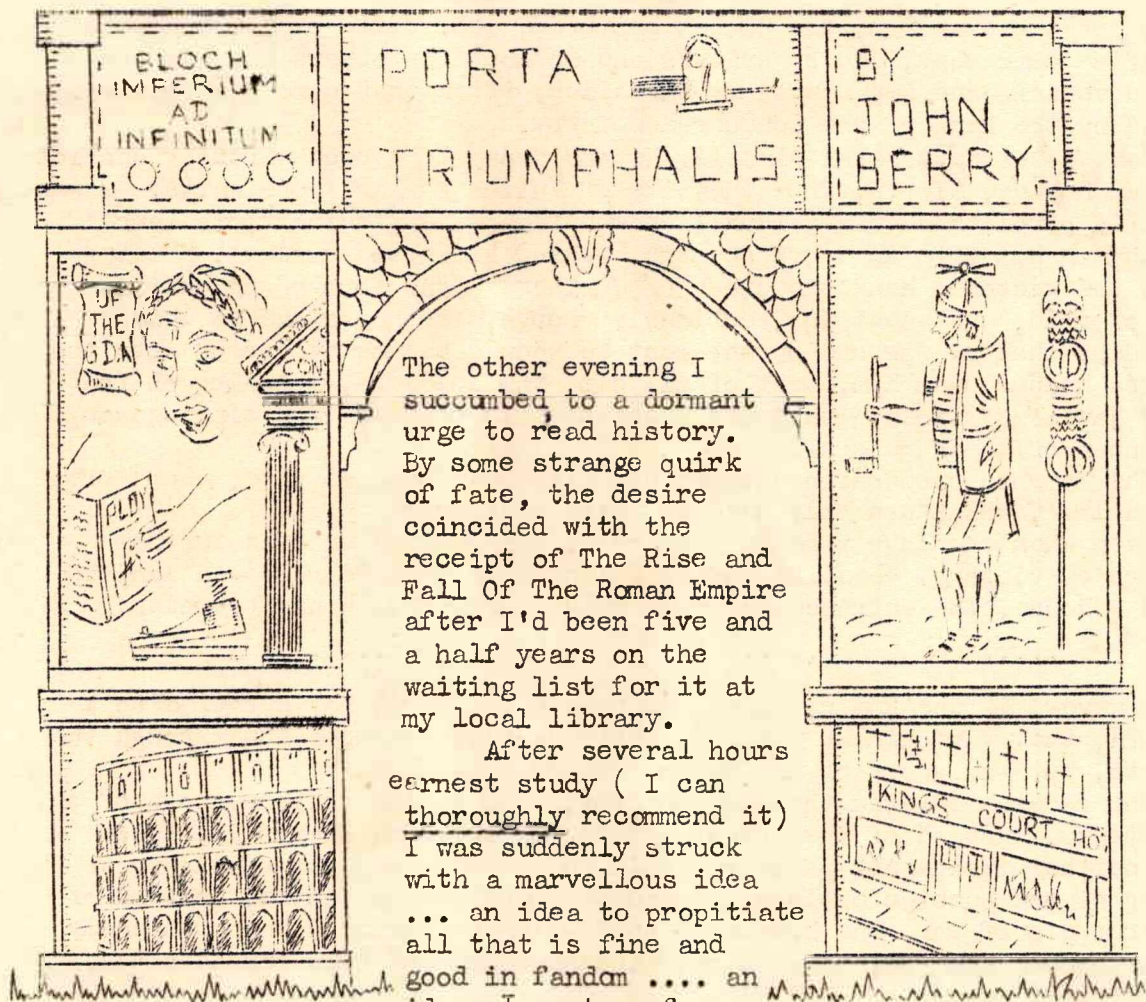 BLOCH
IMPERIUM
AD
INFINITUM
PORTA
TRIUMPHALIS
BY
JOHN
BERRY
OF
THE
GDA
CON
PLOY
The other evening I
succumbed to a dormant
urge to read history.
By some strange quirk
of fate, the desire
coincided with the
receipt of The Rise and
Fall Of The Roman Empire
after I'd been five and
a half years on the
waiting list for it at
my local library.
After several hours
earnest study ( I can
thoroughly recommend it)
I was suddenly struck
with a marvellous idea
... an idea to propitiate
all that is fine and
good in fandom .... an
KINGS COURT HO